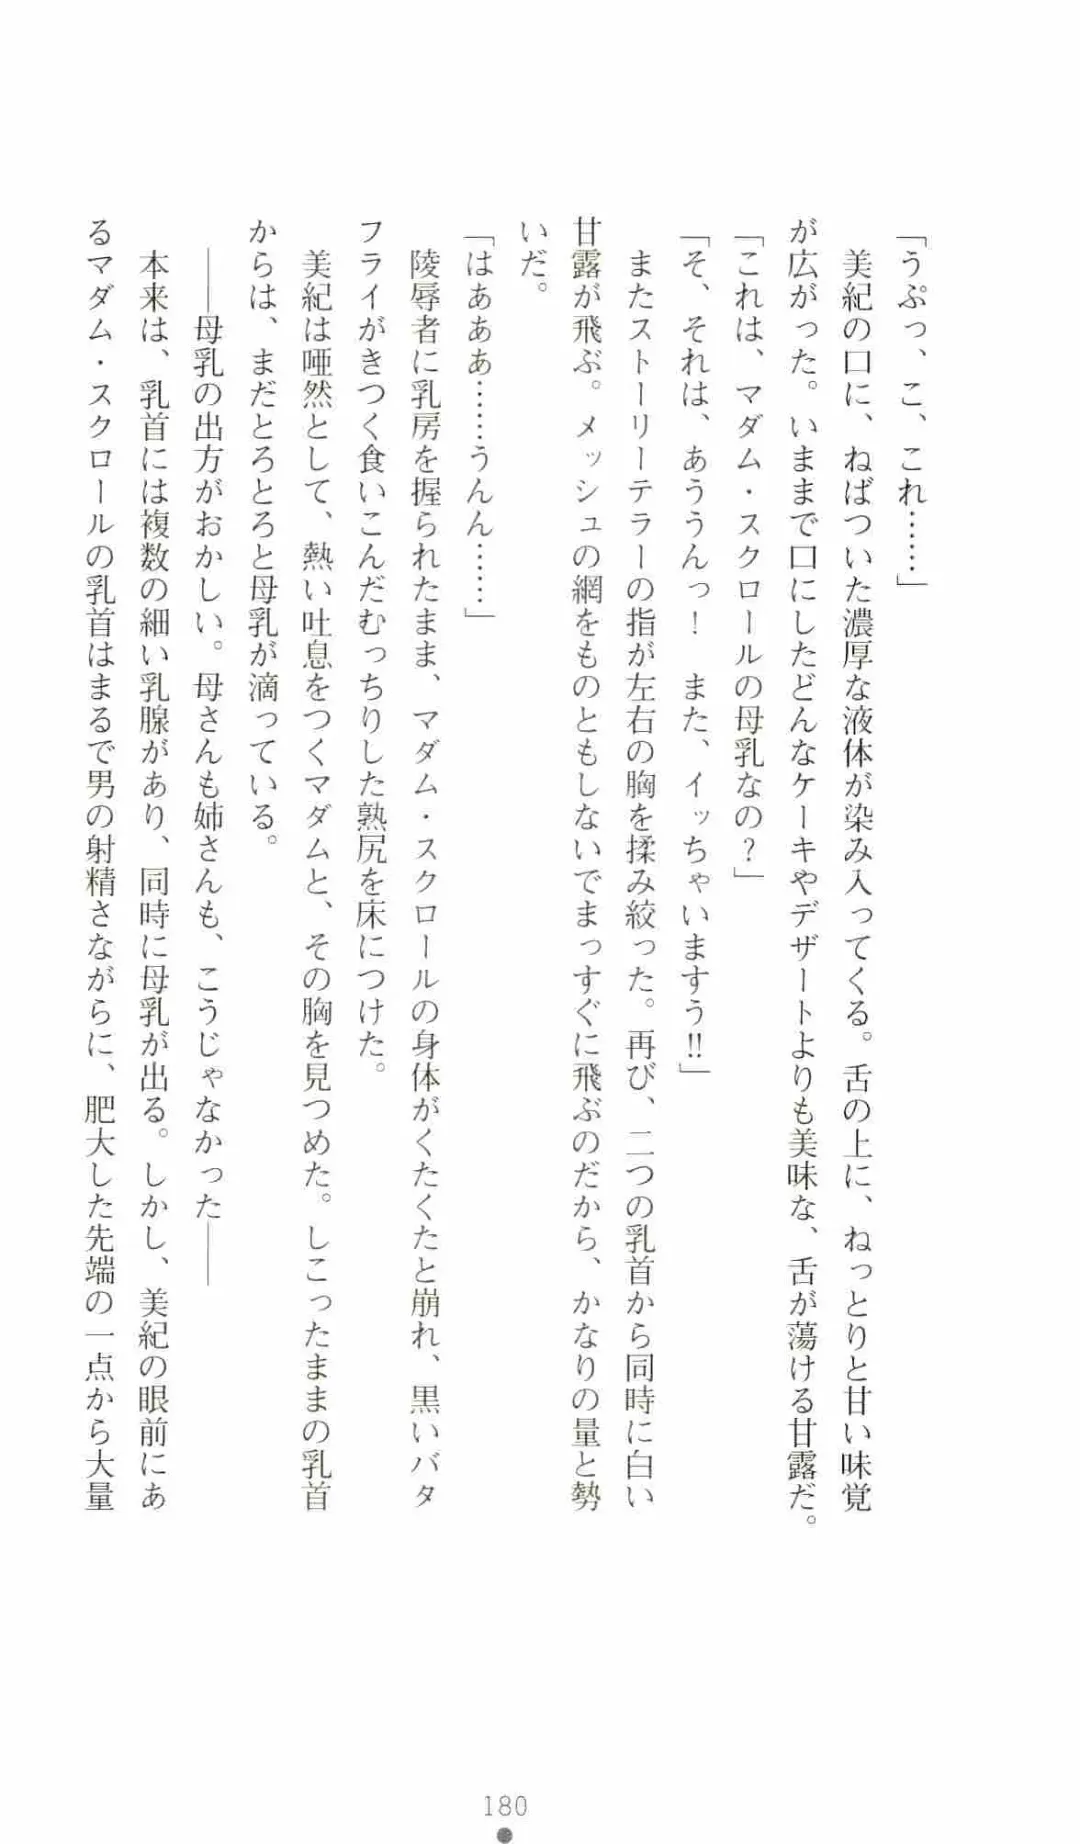 「うぷっ、こ、これ……」
　美紀の口に、ねばついた濃厚な液体が染み入ってくる。舌の上に、ねっとりと甘い味覚
が広がった。いままで口にしたどんなケーキやデザートよりも美味な、舌が蕩ける甘露だ。
「これは、マダム・スクロールの母乳なの？」
「そ、それは、あううんっ！　また、イッちゃいますう‼」
　またストーリーテラーの指が左右の胸を揉み絞った。再び、二つの乳首から同時に白い
甘露が飛ぶ。メッシュの網をものともしないでまっすぐに飛ぶのだから、かなりの量と勢
いだ。
「はあああ……うんん……」
　陵辱者に乳房を握られたまま、マダム・スクロールの身体がくたくたと崩れ、黒いバタ
フライがきつく食いこんだむっちりした熟尻を床につけた。
　美紀は唖然として、熱い吐息をつくマダムと、その胸を見つめた。しこったままの乳首
からは、まだとろとろと母乳が滴っている。
　――母乳の出方がおかしい。母さんも姉さんも、こうじゃなかった――
　本来は、乳首には複数の細い乳腺があり、同時に母乳が出る。しかし、美紀の眼前にあ
るマダム・スクロールの乳首はまるで男の射精さながらに、肥大した先端の一点から大量
180